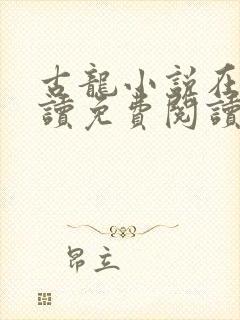 古龍小說在
讀免費閱讀
昂立